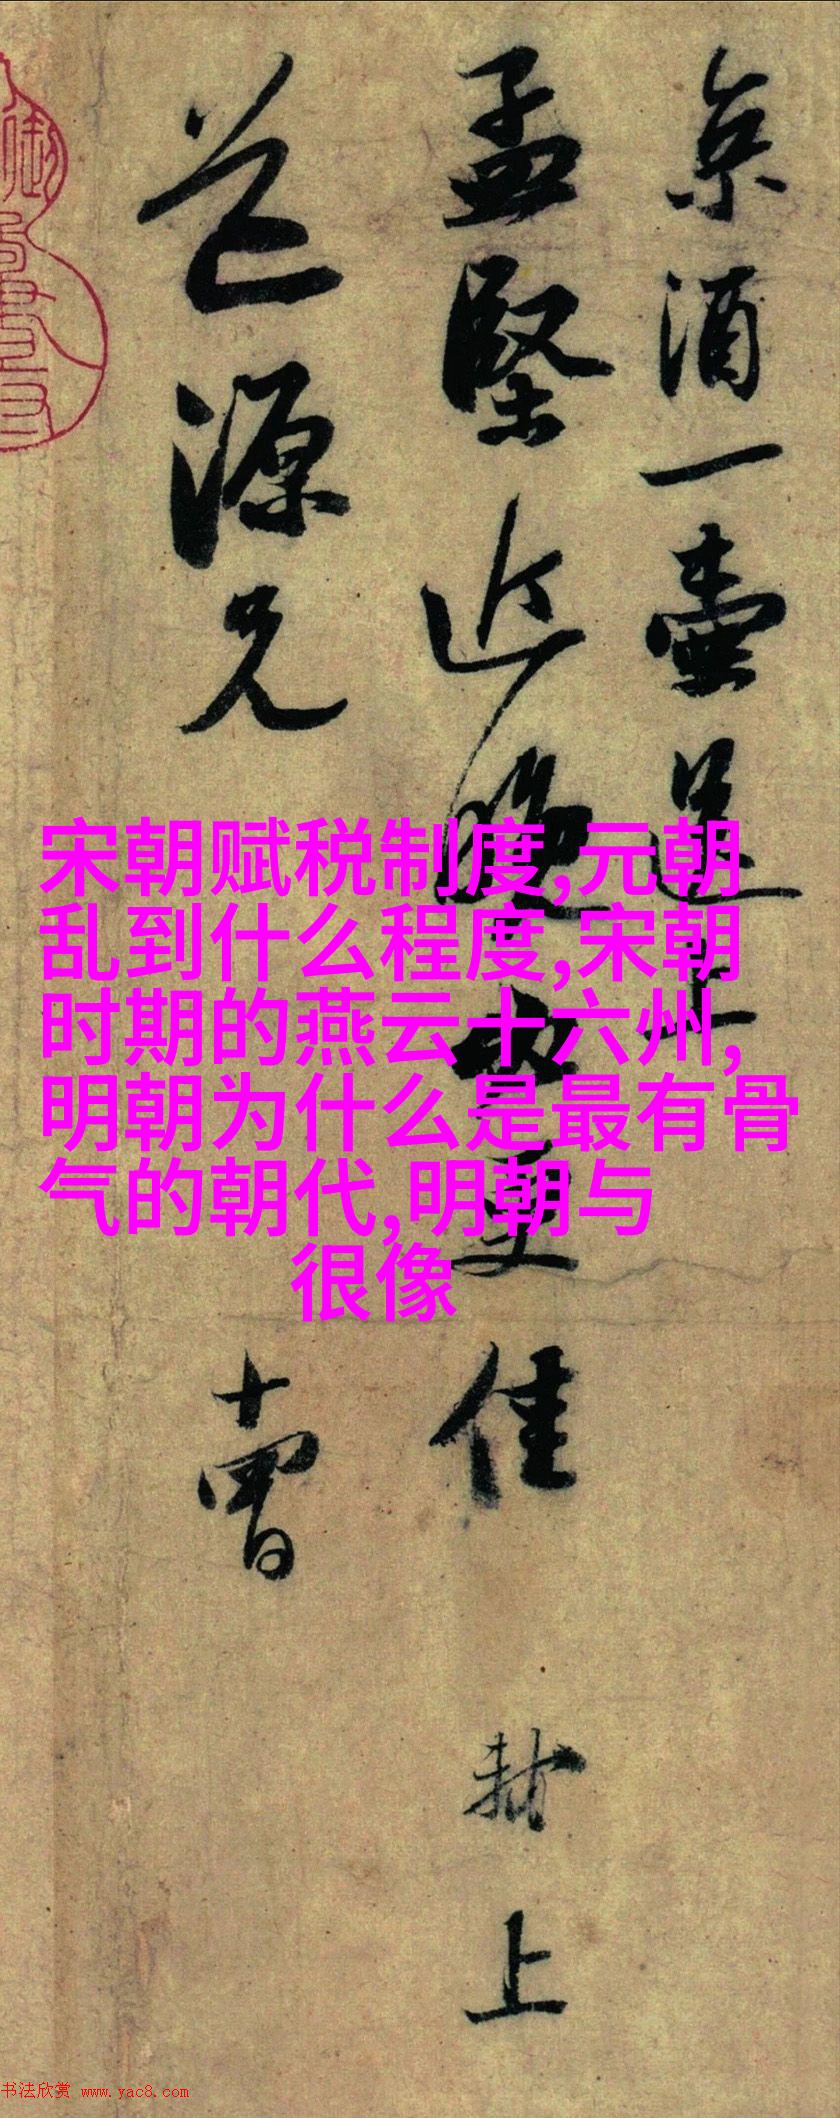 京酒一壶送上
孟坚近晚必更佳
轼上
道源兄
十曹
宋朝赋税制度,元朝
乱到什么程度,宋朝
时期的燕云十六州,
明朝为什么是最有骨
气的朝代,明朝与
很像
书法欣赏 www.yac8.com